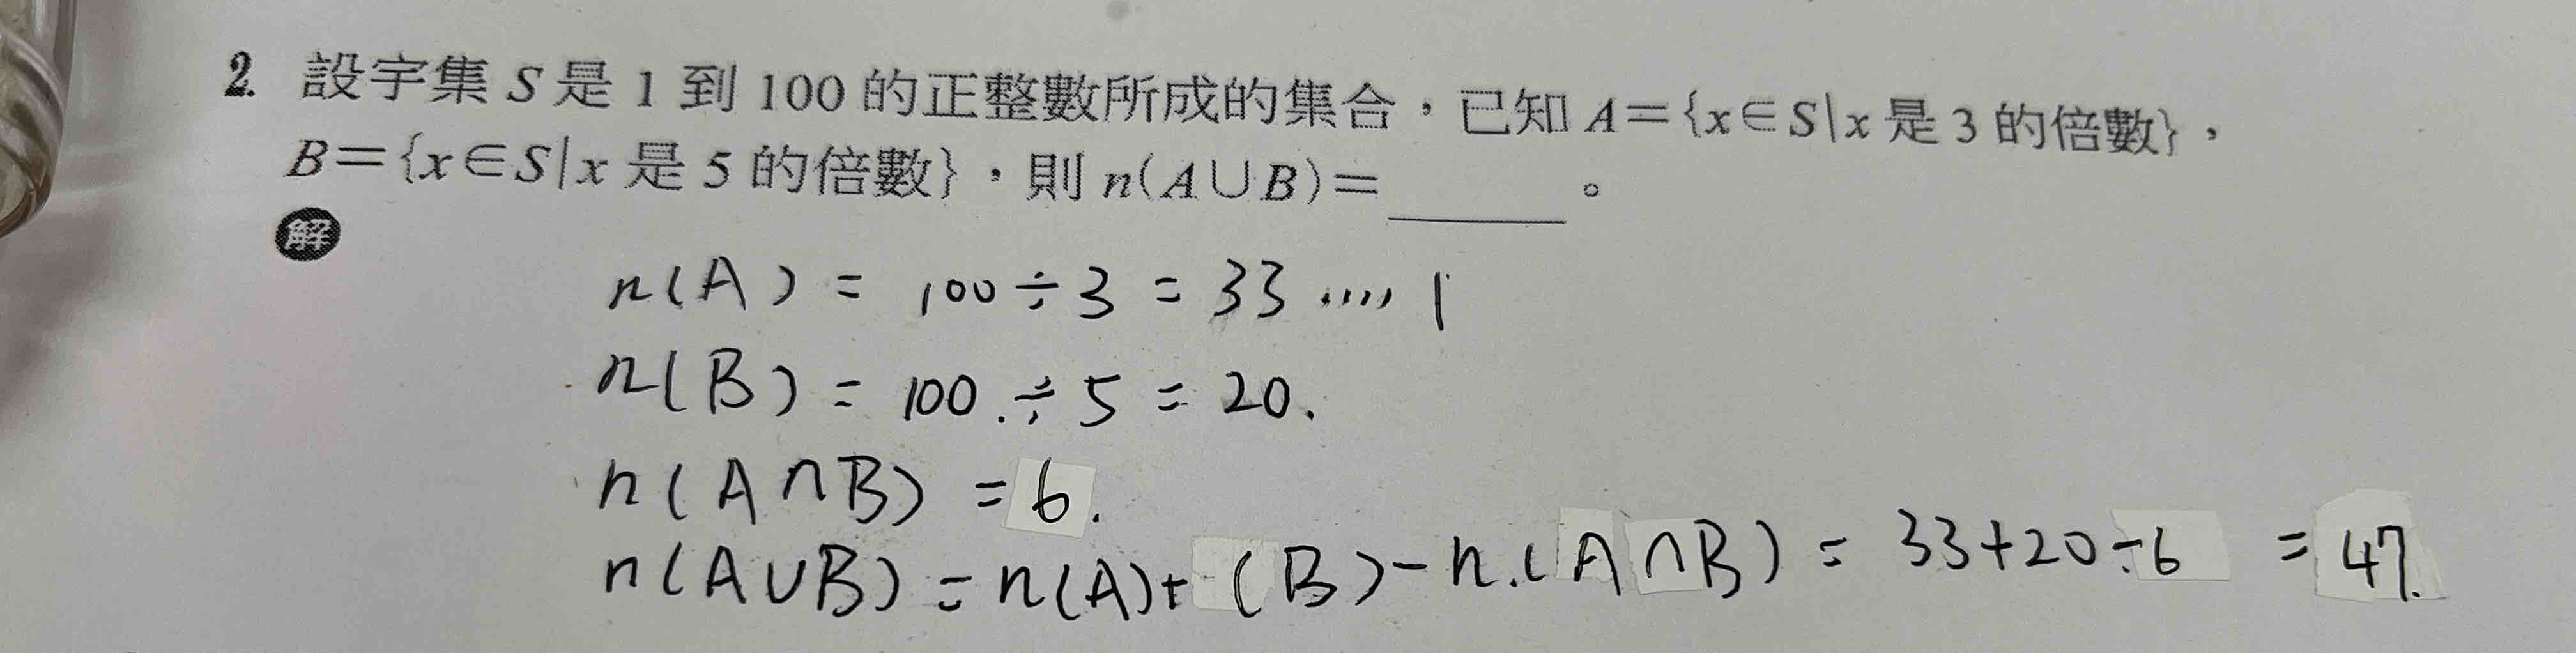 2. 設宇集 S 是 1 到 100 的正整數所成的集合，已知 A={x∈S|x 是 3 的倍數}，
B={x∈S|x 是 5 的倍數}，則 n(A∪B)=______。
解
n(A) = 100÷3 = 33 ..... 1
n(B) = 100.÷5 = 20.
n(A∩B) = 6.
n(A∪B) = n(A)+ (B)-n.(A∩B) = 33+20-6 = 47.